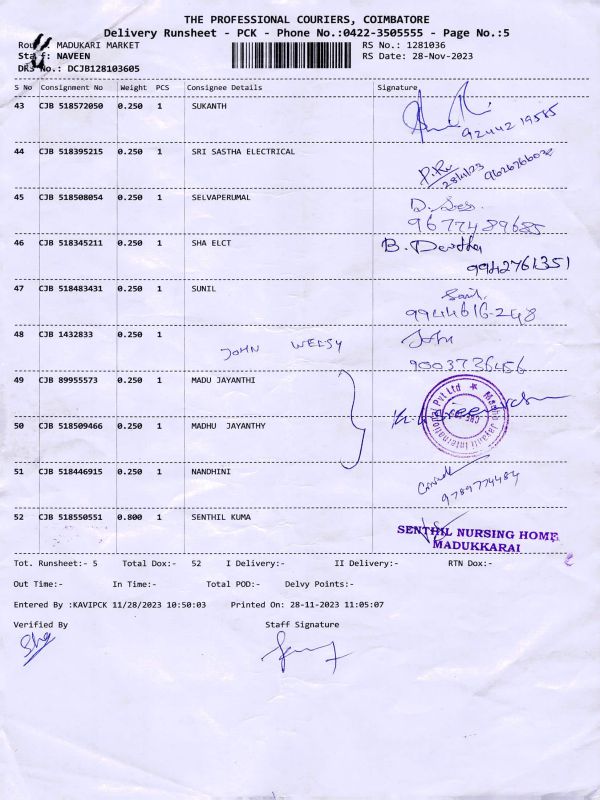 THE PROFESSIONAL COURIERS, COIMBATORE
Delivery Runsheet - PCK - Phone No.:0422-3505555 - Page No.:5
MADUKARI MARKET RS No.: 1281036
NAVEEN RS Date: 28-Nov-2023
DRS No.: DCJB128103605
S No Consignment No Weight PCS Consignee Details Signature
43 CJB 518572050 0.250 1 SUKANTH
9244219585
44 CJB 518395215 0.250 1 SRI SASTHA ELECTRICAL
28/11/23
45 CJB 518508054 0.250 1 SELVAPERUMAL
9677489685
46 CJB 518345211 0.250 1 SHA ELCT B.
9942761351
47 CJB 518483431 0.250 1 SUNIL
9944616248
48 CJB 1432833 0.250 1 John
JOHN WELSY
9003736456
49 CJB 89955573 0.250 1 MADU JAYANTHI
50 CJB 518509466 0.250 1 MADHU JAYANTHY
Madhu Jayanti International Pvt Ltd
CBE
51 CJB 518446915 0.250 1 NANDHINI
9789774484
52 CJB 518550551 0.800 1 SENTHIL KUMA
SENTHIL NURSING HOME
MADUKKARAI
Tot. Runsheet:- 5 Total Dox:- 52 I Delivery:- II Delivery:- RTN Dox:-
Out Time:- In Time:- Total POD:- Delvy Points:-
Entered By :KAVIPCK 11/28/2023 10:50:03 Printed On: 28-11-2023 11:05:07
Verified By Staff Signature